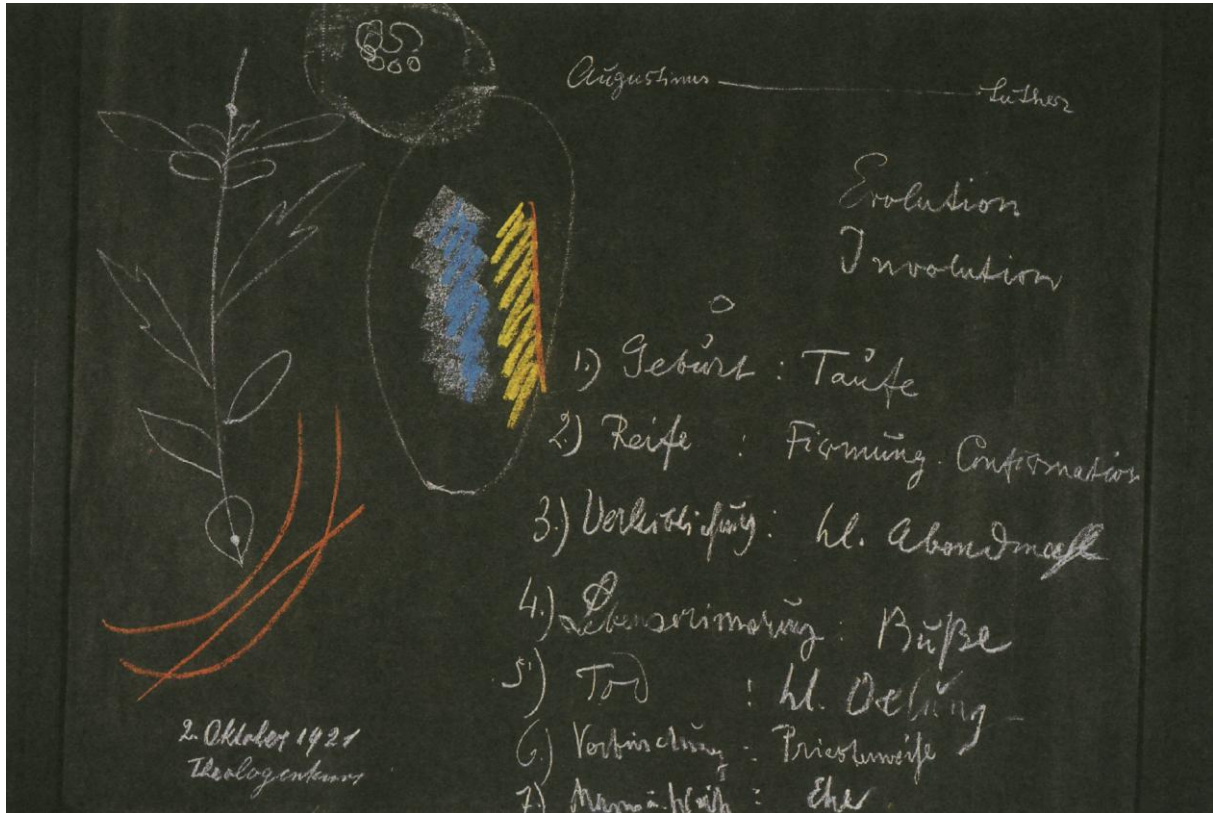 Augustinus Luther
Evolution
Involution
1.) Gebūrt : Taūfe
2.) Reife : Firmūng. Confirmation
3.) Verleiblichūng : hl. Abendmahl
4.) Lebenserinnerūng : Būße
5.) Tod : hl. Oelūng
6.) : Priesterweihe
7.) Mann ū. Weib : Ehe
2. Oktober 1921
Theologenkurs